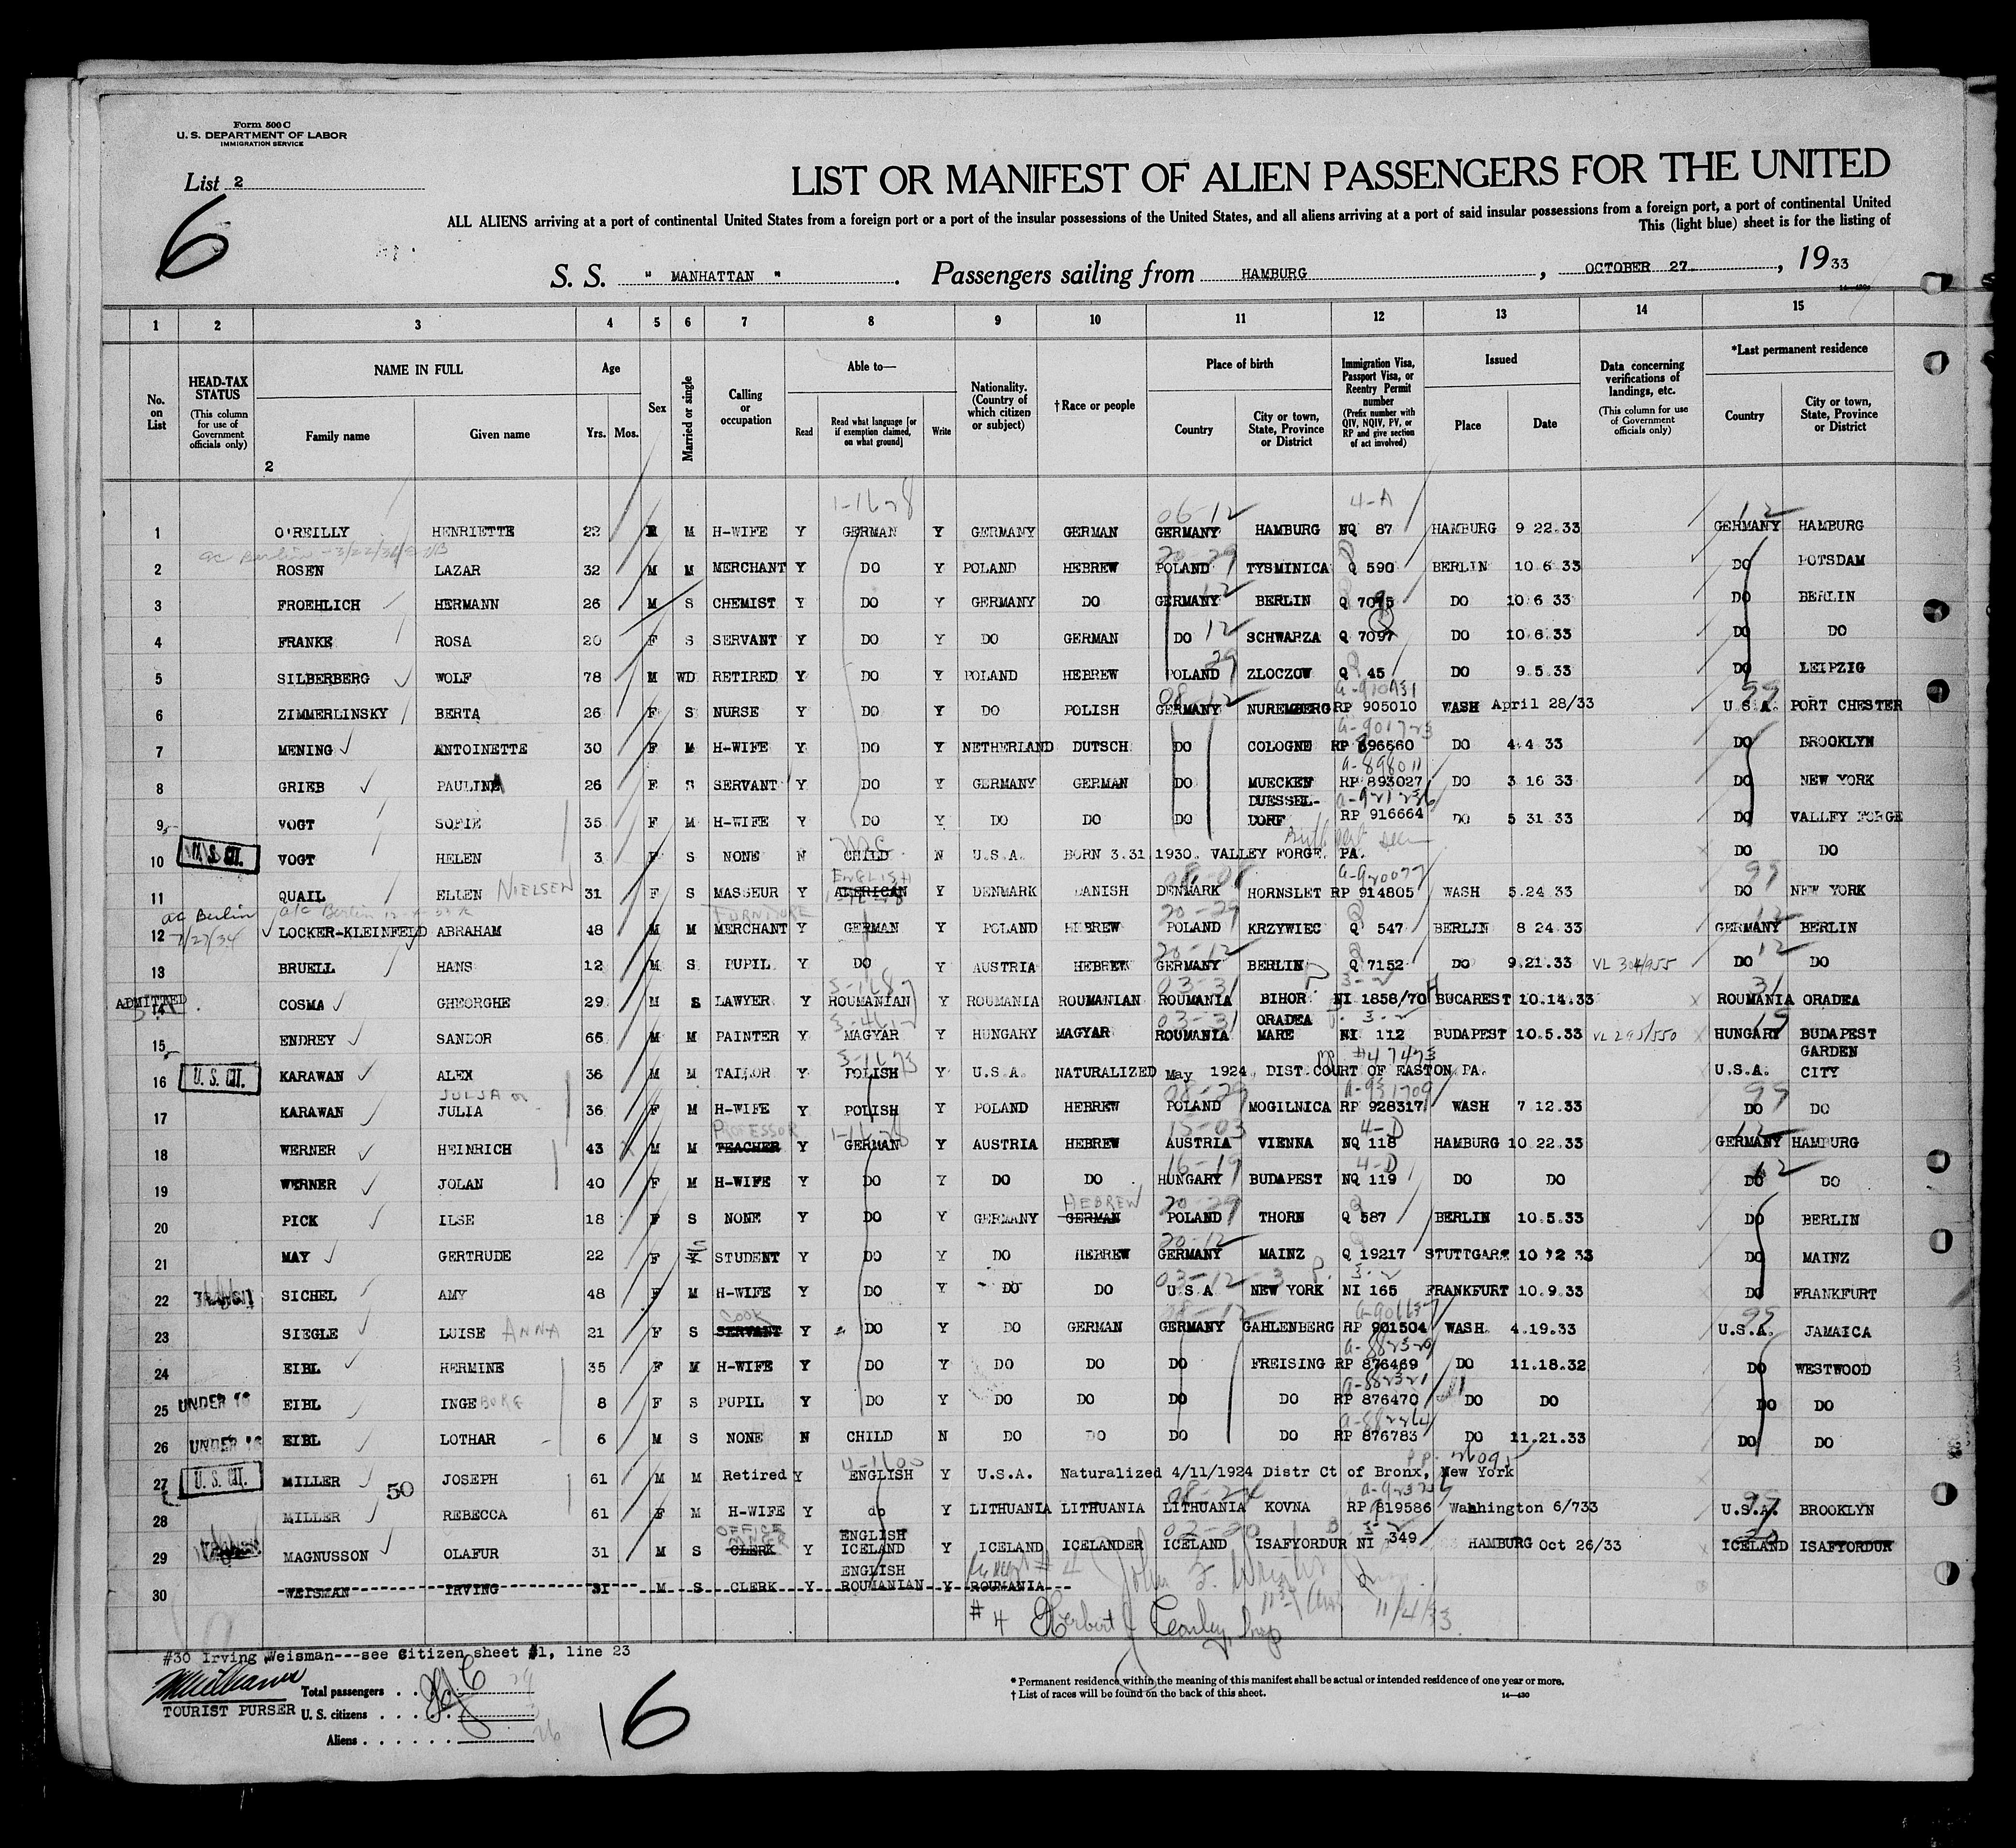 Form 500 C
U. S. DEPARTMENT OF LABOR
IMMIGRATION SERVICE
List 2
6
LIST OR MANIFEST OF ALIEN PASSENGERS FOR THE UNITED
ALL ALIENS arriving at a port of continental United States from a foreign port or a port of the insular possessions of the United States, and all aliens arriving at a port of said insular possessions from a foreign port, a port of continental United
This (light blue) sheet is for the listing of
S. S. " MANHATTAN " . Passengers sailing from HAMBURG , OCTOBER 27. , 19 33
1 2 3 4 5 6 7 8 9 10 11 12 13 14 15
No. on List
HEAD-TAX STATUS (This column for use of Government officials only)
NAME IN FULL Family name Given name
2
Age Yrs. Mos.
Sex
Married or single
Calling or occupation
Able to— Read Read what language [or if exemption claimed, on what ground] Write
Nationality. (Country of which citizen or subject)
†Race or people
Place of birth Country City or town, State, Province or District
Immigration Visa, Passport Visa, or Reentry Permit number (Prefix number with QIV, NQIV, PV, or RP and give section of act involved)
Issued Place Date
Data concerning verifications of landings, etc. (This column for use of Government officials only)
*Last permanent residence Country City or town, State, Province or District
1-1628 06-12 4-A 12
1 O'REILLY HENRIETTE 22 M H-WIFE Y GERMAN Y GERMANY GERMAN GERMANY HAMBURG NQ 87 HAMBURG 9 22.33 GERMANY HAMBURG
20-29
2 ROSEN LAZAR 32 M M MERCHANT Y DO Y POLAND HEBREW POLAND TYSMINICA Q 590 BERLIN 10.6.33 DO POTSDAM
3 FROEHLICH HERMANN 26 M S CHEMIST Y DO Y GERMANY DO GERMANY BERLIN Q 7095 DO 10.6 33 DO BERLIN
4 FRANKE ROSA 20 F S SERVANT Y DO Y DO GERMAN DO 12 SCHWARZA Q 7097 DO 10.6.33 DO DO
5 SILBERBERG WOLF 78 M WD RETIRED Y DO Y POLAND HEBREW POLAND ZLOCZOW Q 45 DO 9.5.33 DO LEIPZIG
08-12 99
6 ZIMMERLINSKY BERTA 26 F S NURSE Y DO Y DO POLISH GERMANY NUREMBERG RP 905010 WASH April 28/33 U.S.A. PORT CHESTER
a-901723
7 MENING ANTOINETTE 30 F M H-WIFE Y DO Y NETHERLAND DUTSCH DO COLOGNE RP 896660 DO 4.4 33 DO BROOKLYN
a-898011
8 GRIEB PAULINA 26 F S SERVANT Y DO Y GERMANY GERMAN DO MUECKEN RP 893027 DO 3 16 33 DO NEW YORK
a-921236
9 VOGT SOFIE 35 F M H-WIFE Y DO Y DO DO DO DUESSEL-DORF RP 916664 DO 5 31 33 DO VALLEY FORGE
10 U. S. CIT. VOGT HELEN 3 F S NONE N CHILD N U.S.A. BORN 3.31.1930. VALLEY FORGE. PA. DO DO
ENGLISH a-920077 99
11 QUAIL ELLEN NIELSEN 31 F S MASSEUR Y AMERICAN Y DENMARK DANISH DENMARK HORNSLET RP 914805 WASH 5.24.33 DO NEW YORK
ac Berlin 7/27/34 FURNITURE 20-29 12
12 LOCKER-KLEINFELD ABRAHAM 48 M M MERCHANT Y GERMAN Y POLAND HEBREW POLAND KRZYWIEC Q 547 BERLIN 8 24.33 GERMANY BERLIN
20-12 12
13 BRUELL HANS 12 M S PUPIL Y DO Y AUSTRIA HEBREW GERMANY BERLIN Q 7152 DO 9.21.33 VL 304/955 DO DO
03-31 31
14 ADMITTED COSMA GHEORGHE 29 M S LAWYER Y ROUMANIAN Y ROUMANIA ROUMANIAN ROUMANIA BIHOR NI 1858/70 BUCAREST 10.14.33 ROUMANIA ORADEA
03-31
15 ENDREY SANDOR 66 M M PAINTER Y MAGYAR Y HUNGARY MAGYAR ROUMANIA ORADEA MARE NI 112 BUDAPEST 10.5.33 VL 295/550 HUNGARY BUDAPEST
16 U. S. CIT. KARAWAN ALEX 36 M M TAILOR Y POLISH Y U.S.A. NATURALIZED May 1924. DIST.COURT OF EASTON PA. U.S.A. GARDEN CITY
JULIA or 08-29 a-931709 99
17 KARAWAN JULIA 36 F M H-WIFE Y POLISH Y POLAND HEBREW POLAND MOGILNICA RP 928317 WASH 7 12.33 DO DO
PROFESSOR 1-1628 15-03 4-D 12
18 WERNER HEINRICH 43 M M TEACHER Y GERMAN Y AUSTRIA HEBREW AUSTRIA VIENNA NQ 118 HAMBURG 10 22.33 GERMANY HAMBURG
16-19 4-D 12
19 WERNER JOLAN 40 F M H-WIFE Y DO Y DO DO HUNGARY BUDAPEST NQ 119 DO DO DO DO
HEBREW 20-29
20 PICK ILSE 18 F S NONE Y DO Y GERMANY GERMAN POLAND THORN Q 587 BERLIN 10.5.33 DO BERLIN
20-12
21 MAY GERTRUDE 22 F STUDENT Y DO Y DO HEBREW GERMANY MAINZ Q 19217 STUTTGART 10 12 33 DO MAINZ
03-12 3-2
22 TRANSIT SICHEL AMY 48 F M H-WIFE Y DO Y DO DO U.S.A NEW YORK NI 165 FRANKFURT 10.9.33 DO FRANKFURT
COOK 08-12 99
23 SIEGLE LUISE ANNA 21 F S SERVANT Y DO Y DO GERMAN GERMANY GAHLENBERG RP 901504 WASH. 4.19.33 U.S.A. JAMAICA
a-882320
24 EIBL HERMINE 35 F M H-WIFE Y DO Y DO DO DO FREISING RP 876469 DO 11.18.32 DO WESTWOOD
a-882321
25 UNDER 16 EIBL INGEBORG 8 F S PUPIL Y DO Y DO DO DO DO RP 876470 DO DO DO DO
26 UNDER 16 EIBL LOTHAR 6 M S NONE N CHILD N DO DO DO DO RP 876783 DO 11.21.33 DO DO
27 U. S. CIT. MILLER 50 JOSEPH 61 M M Retired Y ENGLISH Y U.S.A. Naturalized 4/11/1924 Distr Ct of Bronx, New York
08-24 99
28 MILLER REBECCA 61 F M H-WIFE Y do Y LITHUANIA LITHUANIA LITHUANIA KOVNA RP 919586 Washington 6/733 U.S.A. BROOKLYN
OFFICE
29 MAGNUSSON OLAFUR 31 M S CLERK Y ENGLISH ICELAND Y ICELAND ICELANDER ICELAND ISAFYORDUR NI 349 HAMBURG Oct 26/33 ICELAND ISAFYORDUR
30 WEISMAN IRVING 31 M S CLERK Y ENGLISH ROUMANIAN Y ROUMANIA
11/4/33
# 4 Herbert Conley, Insp
#30 Irving Weisman---see Citizen sheet #1, line 23
TOURIST PURSER
Total passengers
U. S. citizens
Aliens 26
16
* Permanent residence within the meaning of this manifest shall be actual or intended residence of one year or more.
† List of races will be found on the back of this sheet.
14—430